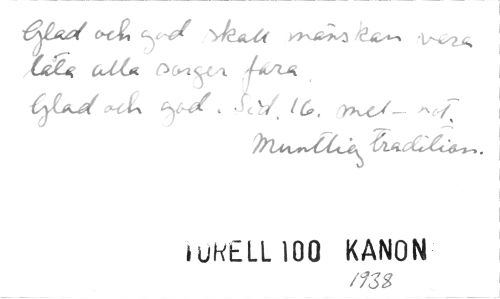 Glad och god skall mänskan vara
låta alla sorger fara.
Glad och god. Sid. 16. mel-not.
Muntlig tradition.
TURELL 100 KANON
1938